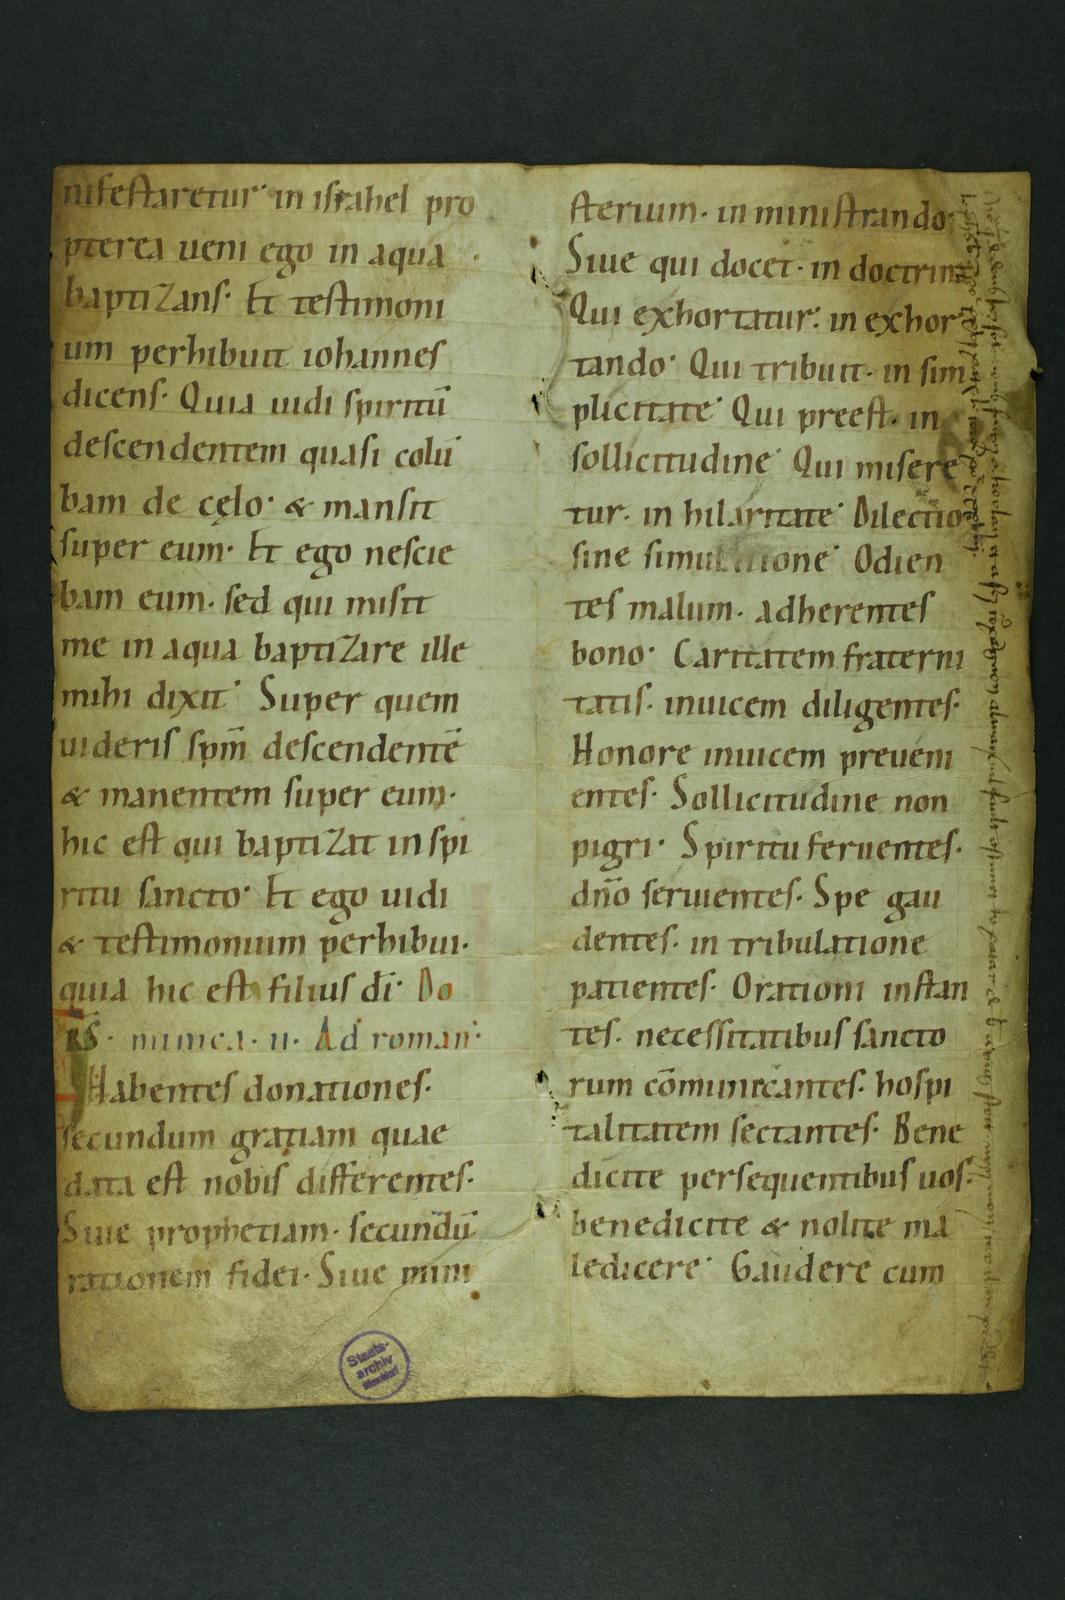 nifestaretur· in israhel pro
pterea ueni ego in aqua
baptizans· Et testimoni
um perhibuit iohannes
dicens· Quia uidi spiritū
descendentem quasi colū
bam de cęlo· & mansit
super eum· Et ego nescie
bam eum· sed qui misit
me in aqua baptizare ille
mihi dixit· Super quem
uideris sp̄m descendentē
& manentem super eum·
hic est qui baptizat in spi
ritu sancto· Et ego uidi
& testimonium perhibui·
quia hic est filius dī· Do
minica· ii· Ad roman·
Habentes donationes·
secundum gratiam quae
data est nobis differentes·
Siue prophetiam· secundū
rationem fidei· Siue mini
sterium· in ministrando·
Siue qui docet· in doctrina
Qui exhortatur· in exhor
tando· Qui tribuit· in sim
plicitate· Qui preest· in
sollicitudine· Qui misere
tur· in hilaritate· Dilectio
sine simulatione· Odien
tes malum· adherentes
bono· Caritatem fraterni
tatis· inuicem diligentes·
Honore inuicem preueni
entes· Sollicitudine non
pigri· Spiritu feruentes·
dn̄o seruientes· Spe gau
dentes· in tribulatione
patientes· Orationi instan
tes· necessitatibus sancto
rum cōmunicantes· hospi
talitatem sectantes· Bene
dicite persequentibus uos·
benedicite & nolite ma
ledicere· Gaudere cum
Staats-
archiv